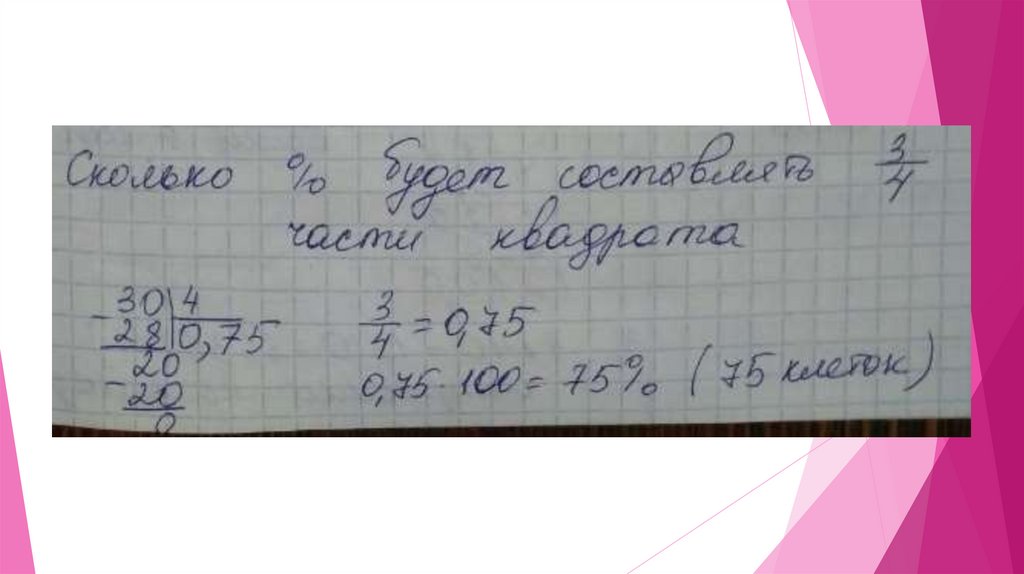 Сколько % будет составлять 3/4
части квадрата
30 | 4
- 28 | 0,75
20
- 20
0
3/4 = 0,75
0,75 · 100 = 75% (75 клеток)